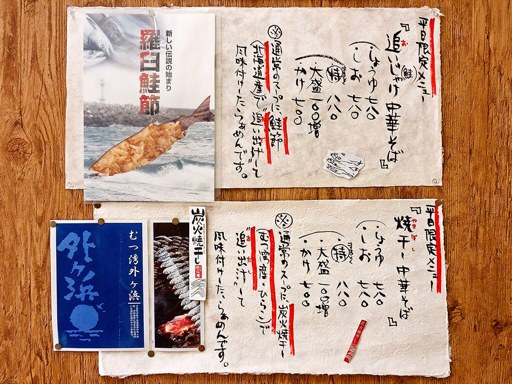 平日限定メニュー
『追いじゃけ中華そば』
お
鮭
しょうゆ 七八〇
・しお 七八〇
特 八八〇
・大盛 一〇〇増
・かけ 七〇〇
※通常のスープに鮭節
(北海道産)で追い出汁して
風味付けしたらぁめんです。
新しい伝説の始まり
羅臼鮭節
平日限定メニュー
『焼干し中華そば』
しょうゆ 七八〇
・しお 七八〇
特 八八〇
・大盛 一〇〇増
・かけ 七〇〇
※通常のスープに炭火焼干し
で
追い出汁して
風味付けしたらぁめんです。
炭火焼干し
むつ湾外ヶ浜
外ヶ浜